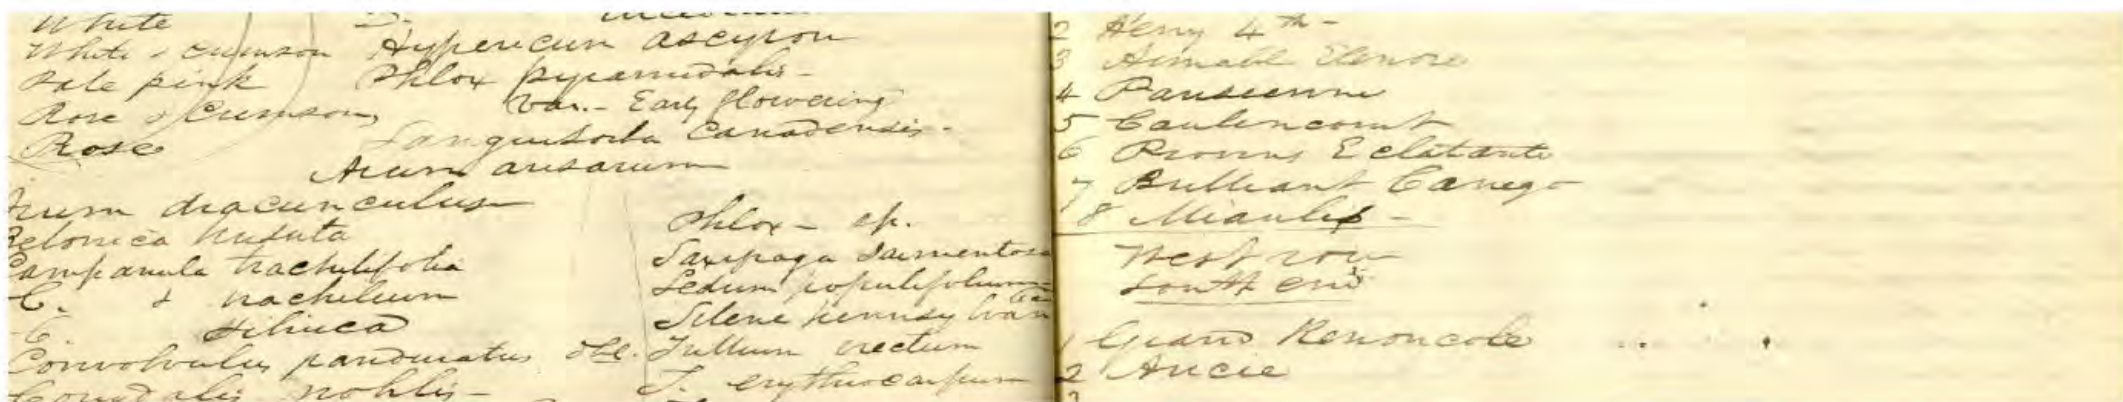 White
White & crimson Hypericum ascyron
Pale pink Phlox pyramidalis -
Rose & Crimson, Var. - Early flowering
Rose Sanguisorba Canadensis -
Arum arisarum
Arum dracunculus
Betonica hirsuta
Campanula trachilifolia
C. & trachilium
C.
Convolvulus panduratus
Corydalis nobilis -
Phlox - sp.
Saxifraga Sarmentosa
Sedum populifolium
Silene pennsylvan
Trillium erectum
T. erythrocarpum
2 Henry 4th -
3 Aimable Elenore
4 Parisienne
5 Caulincourt
6 Provins Eclatante
7 Brilliant Carrego
8 Miaulis -
West row
South end
1 Grand Renoncole
2 Aucie
3